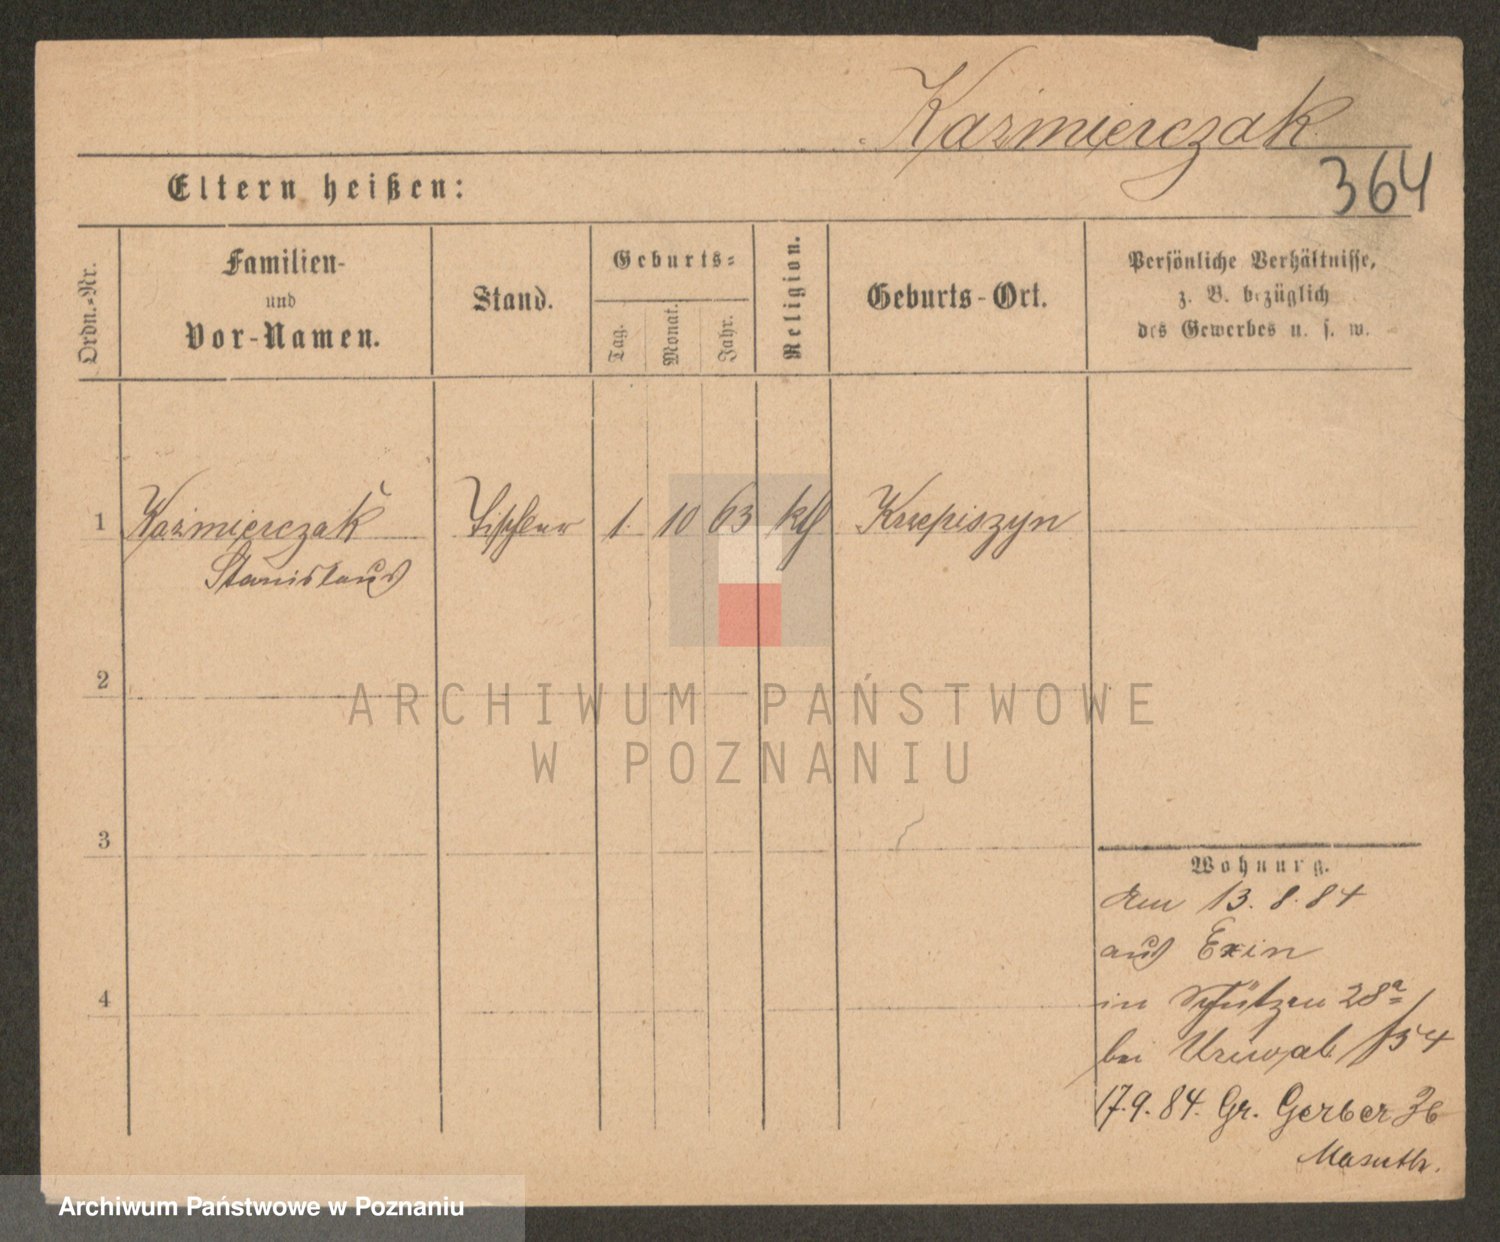 Kaźmierczak
364
Eltern heißen:
Ordn.-Nr.
Familien-
und
Vor-Namen.
Stand.
Geburts-
Tag.
Monat.
Jahr.
Religion.
Geburts-Ort.
Persönliche Verhältnisse,
z. B. bezüglich
des Gewerbes u. s. w.
1 Kaźmierczak Tischler 1. 10 63 kth Krzepiszyn
Stanislaus
2
ARCHIWUM PAŃSTWOWE
W POZNANIU
3
Wohnung.
den 13. 8. 84
aus Exin
4
in Schützen 28a
bei 154
17.9.84. Gr. Gerber 36
Archiwum Państwowe w Poznaniu